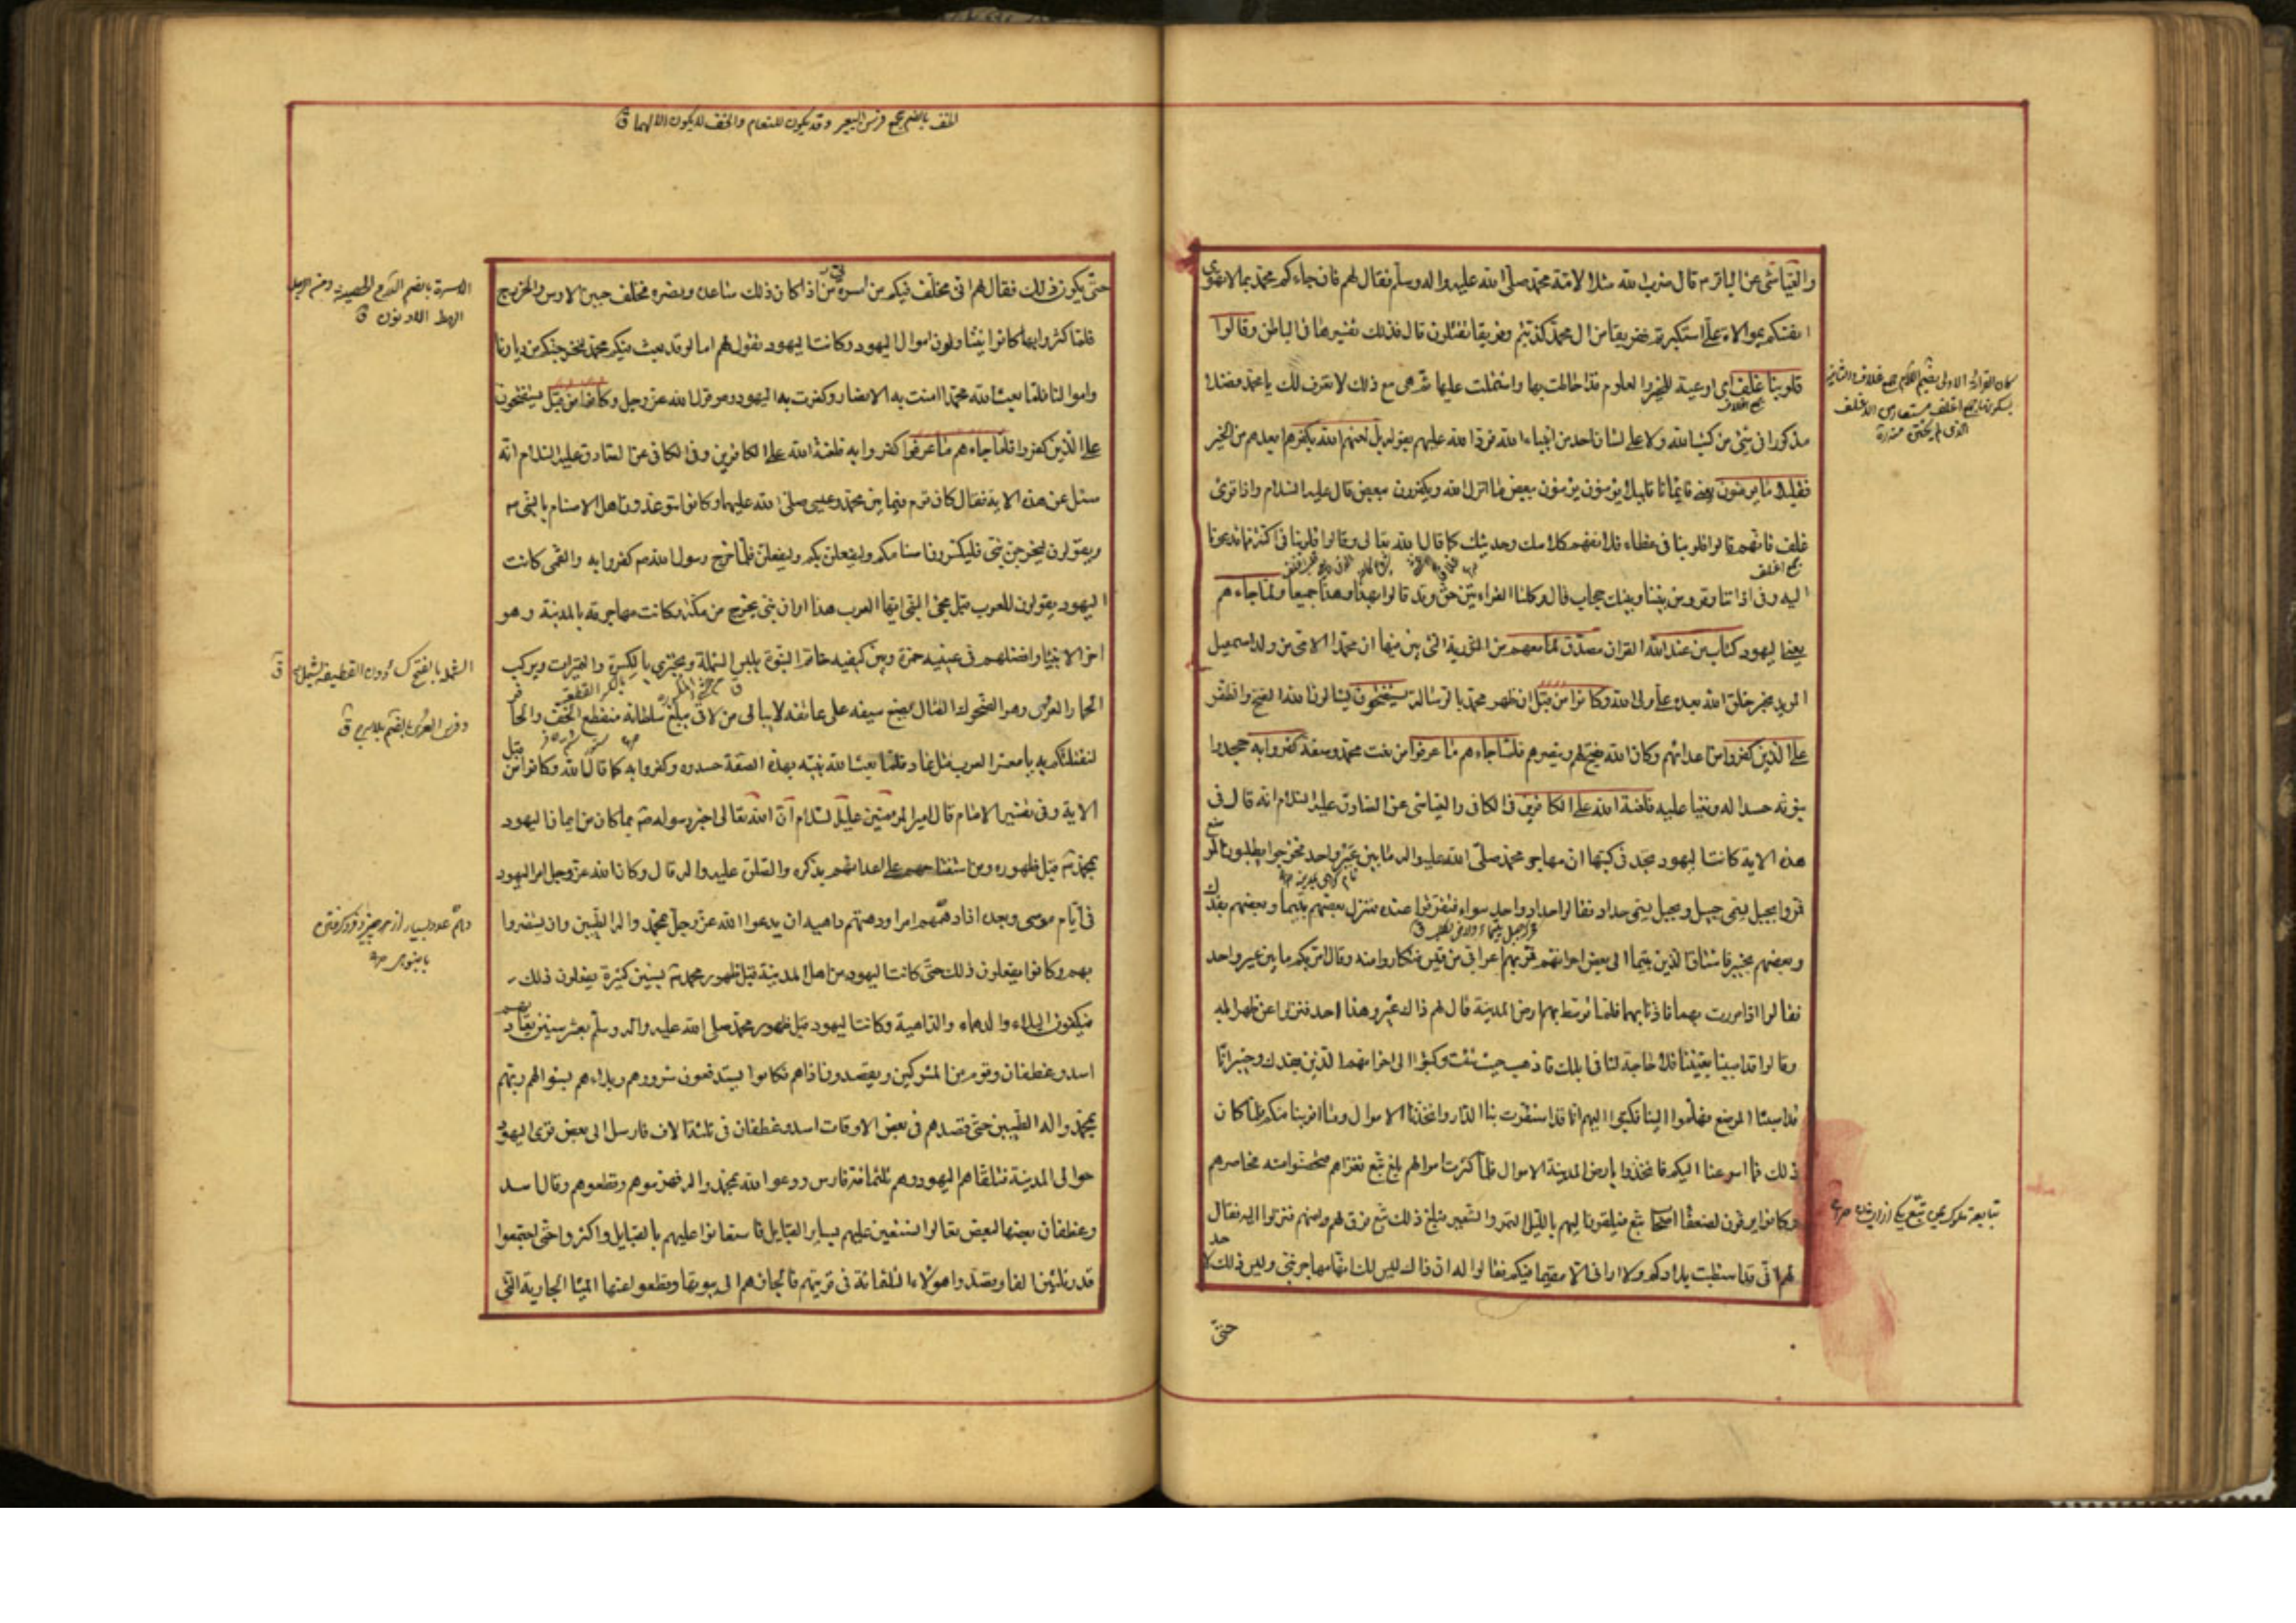 والعياشي عن الباقر م قال ضرب الله مثلا لامة محمد صلى الله عليه واله وسلم فقال لهم فان جاءكم محمد بما لا تهوى
انفسكم بموالاة علي استكبرتم ففريقا من ال محمد كذبتم وفريقا تقتلون قال فذلك تفسيرها في الباطن وقالوا
قلوبنا غلف اي اوعية للخير والعلوم قد احاطت بها واشتملت عليها ثم هي مع ذلك لا تعرف لك يا محمد فضلا
مذكورا في شيء من كتب الله ولا على لسان احد من انبياء الله فرد الله عليهم بقوله بل لعنهم الله بكفرهم ابعدهم من الخير
فقليلا ما يؤمنون يعني فايمانا قليلا يؤمنون يؤمنون ببعض ما انزل الله ويكفرون ببعض قال عليه السلام واذا قرئ
غلف فانهم قالوا قلوبنا في غطاء فلا نفهم كلامك وحديثك كما قال الله تعالى وقالوا قلوبنا في اكنة مما تدعونا
جمع اغلف
اليه وفي اذاننا وقر ومن بيننا وبينك حجاب قال وكلتا القراءتين حق وقد قالوا بهذا وهذا جميعا ولما جاءهم
يعني اليهود كتاب من عند الله القران مصدق لما معهم من التورية التي بين فيها ان محمدا الامي من ولد اسمعيل
المؤيد بخير خلق الله بعده علي ولي الله وكانوا من قبل ان ظهر محمد بالرسالة يستفتحون يسالون الله الفتح والظفر
على الذين كفروا من اعدائهم وكان الله يفتح لهم وينصرهم فلما جاءهم ما عرفوا من نعت محمد وصفته كفروا به جحدوا
نبوته حسدا له وبغيا عليه فلعنة الله على الكافرين في الكافي والعياشي عن الصادق عليه السلام انه قال في
هذه الاية كانت اليهود تجد في كتبها ان مهاجر محمد صلى الله عليه واله ما بين عير واحد فخرجوا يطلبون الموضع
فمروا بجبل يسمى جبل وبجبل يسمى حداد فقالوا حداد واحد سواء فتفرقوا عنده فنزل بعضهم بتيما وبعضهم بفدك
وبعضهم بخيبر فاشتاق الذين بتيما الى بعض اخوانهم فمر بهم اعرابي من قيس فتكاروا منه وقال امر بكم ما بين عير واحد
فقالوا اذا مررت بهما فاذنا بهما فلما توسط بهم ارض المدينة قال لهم ذاك عير وهذا احد فنزلوا عن ظهر ابله
وقالوا قد اصبنا بغيتنا فلا حاجة لنا في ابلك فاذهب حيث شئت وكتبوا الى اخوانهم الذين بفدك وخيبر انا
قد اصبنا الموضع فهلموا الينا فكتبوا اليهم انا قد استقرت بنا الدار واتخذنا الاموال وما اقربنا منكم فاذا كان
ذلك فما اسرعنا اليكم فاتخذوا بارض المدينة الاموال فلما كثرت اموالهم بلغ تبع فغزاهم فتحصنوا منه فحاصرهم
وكانوا يرقون لضعفاء اصحاب تبع فيلقون اليهم بالليل التمر والشعير فبلغ ذلك تبع فرق لهم وامنهم فنزلوا اليه فقال
لهم اني قد استطبت بلادكم ولا اراني الا مقيما فيكم فقالوا له ان ذاك ليس لك انها مهاجر نبي وليس ذلك لاحد
حتى
الذي لم يختن
حتى يكون ذلك فقال لهم اني مخلف فيكم من اسرتي من اذا كان ذلك ساعده ونصره فخلف حيين الاوس والخزرج
فلما كثروا بها كانوا يتناولون اموال اليهود وكانت اليهود تقول لهم اما لو قد بعث فيكم محمد لنخرجنكم من ديارنا
واموالنا فلما بعث الله محمدا امنت به الانصار وكفرت به اليهود وهو قول الله عز وجل وكانوا من قبل يستفتحون
على الذين كفروا فلما جاءهم ما عرفوا كفروا به فلعنة الله على الكافرين وفي الكافي عن الصادق عليه السلام انه
سئل عن هذه الاية فقال كان قوم فيما بين محمد وعيسى صلى الله عليهما وكانوا يتوعدون اهل الاصنام بالنبي ص
ويقولون ليخرجن نبي فليكسرن اصنامكم وليفعلن بكم وليفعلن فلما خرج رسول الله ص كفروا به والقمي كانت
اليهود يقولون للعرب قبل مجيء النبي ايها العرب هذا اوان نبي يخرج من مكة وكانت مهاجرته بالمدينة وهو
اخر الانبياء وافضلهم في عينيه حمرة وبين كتفيه خاتم النبوة يلبس الشملة ويجتزي بالكسرة والتميرات ويركب
الحمار العرى وهو الضحوك القتال يضع سيفه على عاتقه لا يبالي من لاقى يبلغ سلطانه منقطع الخف والحافر
لنقتلنكم به يا معشر العرب قتل عاد فلما بعث الله نبيه بهذه الصفة حسدوه وكفروا به كما قال الله وكانوا من قبل
الاية وفي تفسير الامام قال امير المؤمنين عليه السلام ان الله تعالى اخبر رسوله ص بما كان من ايمان اليهود
بمحمد ص قبل ظهوره ومن استفتاحهم على اعدائهم بذكره والصلوة عليه واله قال وكان الله عز وجل امر اليهود
في ايام موسى وبعده اذا دهمهم امر او دهتهم داهية ان يدعوا الله عز وجل بمحمد واله الطيبين وان يستنصروا
بهم وكانوا يفعلون ذلك حتى كانت اليهود من اهل المدينة قبل ظهور محمد ص بسنين كثيرة يفعلون ذلك
فيكفون البلاء والدهماء والداهية وكانت اليهود قبل ظهور محمد صلى الله عليه واله وسلم بعشر سنين تعاديهم
اسد وغطفان وقوم من المشركين ويقصدون اذاهم فكانوا يستدفعون شرورهم وبلاءهم بسؤالهم ربهم
بمحمد واله الطيبين حتى قصدهم في بعض الاوقات اسد وغطفان في ثلثة الاف فارس الى بعض قرى اليهود
حوالي المدينة فتلقاهم اليهود وهم ثلثمائة فارس ودعوا الله بمحمد واله فهزموهم وقطعوهم وقال اسد
وغطفان بعضها لبعض تعالوا نستعين عليهم بساير القبايل فاستعانوا عليهم بالقبايل واكثروا حتى اجتمعوا
قدر ثلثين الفا وقصدوا هؤلاء الثلثمائة في قريتهم فالجاؤهم الى بيوتها وقطعوا عنها المياه الجارية التي
الاسرة بالضم الدرع الحصينة ومن الرجل
الرهط الادنون ق
وفرس العري بالضم بلا سرج ق